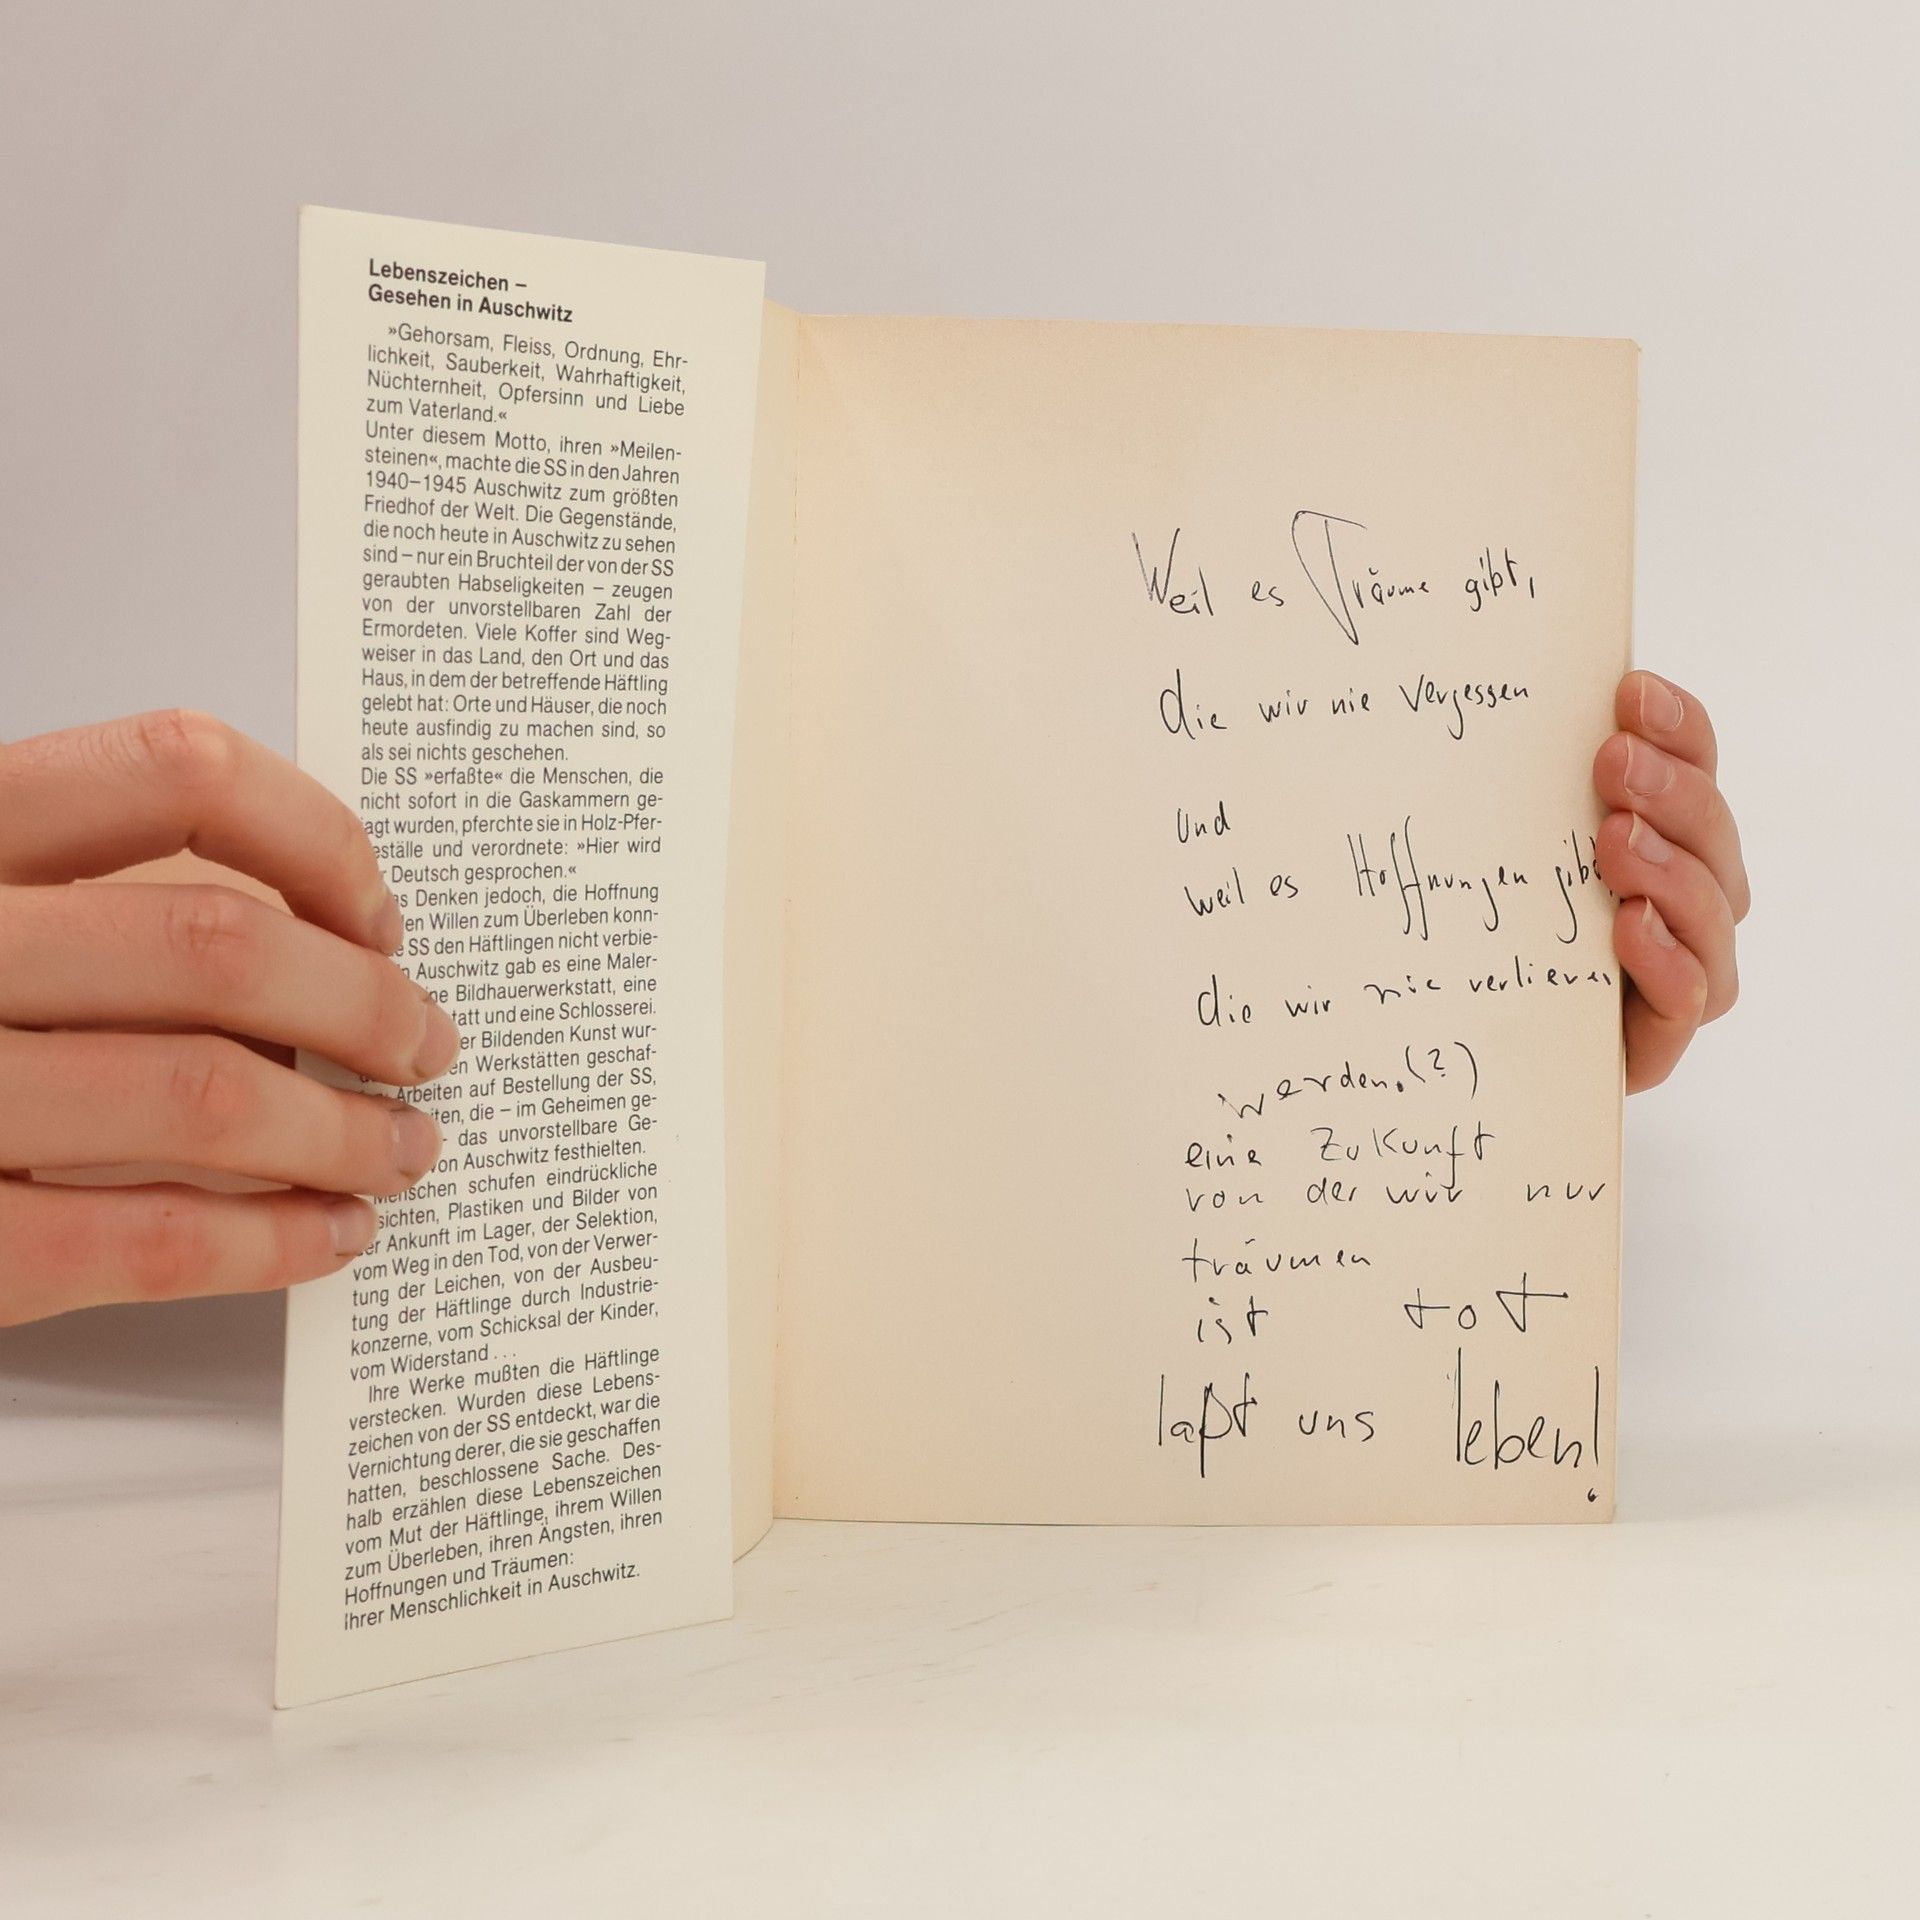 Lebenszeichen –
Gesehen in Auschwitz
»Gehorsam, Fleiss, Ordnung, Ehr-
lichkeit, Sauberkeit, Wahrhaftigkeit,
Nüchternheit, Opfersinn und Liebe
zum Vaterland.«
Unter diesem Motto, ihren »Meilen-
steinen«, machte die SS in den Jahren
1940–1945 Auschwitz zum größten
Friedhof der Welt. Die Gegenstände,
die noch heute in Auschwitz zu sehen
sind – nur ein Bruchteil der von der SS
geraubten Habseligkeiten – zeugen
von der unvorstellbaren Zahl der
Ermordeten. Viele Koffer sind Weg-
weiser in das Land, den Ort und das
Haus, in dem der betreffende Häftling
gelebt hat: Orte und Häuser, die noch
heute ausfindig zu machen sind, so
als sei nichts geschehen.
Die SS »erfaßte« die Menschen, die
nicht sofort in die Gaskammern ge-
jagt wurden, pferchte sie in Holz-Pfer-
eställe und verordnete: »Hier wird
Deutsch gesprochen.«
Denken jedoch, die Hoffnung
en Willen zum Überleben konn-
SS den Häftlingen nicht verbie-
Auschwitz gab es eine Maler-
ne Bildhauerwerkstatt, eine
tatt und eine Schlosserei.
er Bildenden Kunst wur-
en Werkstätten geschaf-
Arbeiten auf Bestellung der SS,
iten, die – im Geheimen ge-
- das unvorstellbare Ge-
von Auschwitz festhielten.
Menschen schufen eindrückliche
sichten, Plastiken und Bilder von
er Ankunft im Lager, der Selektion,
vom Weg in den Tod, von der Verwer-
tung der Leichen, von der Ausbeu-
tung der Häftlinge durch Industrie-
konzerne, vom Schicksal der Kinder,
vom Widerstand . . .
Ihre Werke mußten die Häftlinge
verstecken. Wurden diese Lebens-
zeichen von der SS entdeckt, war die
Vernichtung derer, die sie geschaffen
hatten, beschlossene Sache. Des-
halb erzählen diese Lebenszeichen
vom Mut der Häftlinge, ihrem Willen
zum Überleben, ihren Ängsten, ihren
Hoffnungen und Träumen:
Ihrer Menschlichkeit in Auschwitz.
Weil es Träume gibt,
die wir nie vergessen
und
weil es Hoffnungen gibt,
die wir nie verlieren
werden.(?)
eine Zukunft
von der wir nur
träumen
ist tot
laßt uns leben!